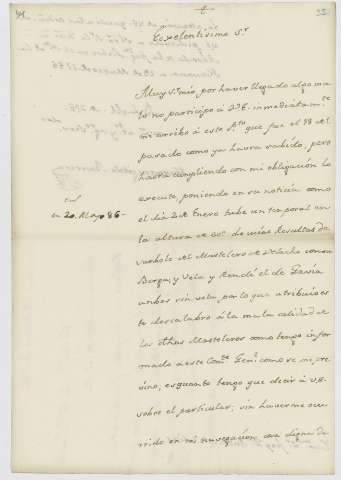 Exelentisimo Sr
Muy Sr mio, por haver llegado algo ma
lo no participo à V.E. inmediatam.te
mi arribo à este P.to que fue el 18 del
pasado como ya havra savido, pero
haora cumpliendo con mi obligacion lo
executo, poniendo en su noticia como
el dia 2 de Enero tube un temporal en
la altura de 60.. de cuias Resultas de
sarbolè el Mastelero de Velacho con su
Berga, y Vela y Rendì el de Gavia
ambos sin vela, por lo que atribuio es
te descalabro à la mala calidad de
los dhos Masteleros como tengo infor
mado a este Com.te Gen.l como se me pre
vino, es quanto tengo que decir à V.E.
sobre el particular, sin haverme ocu
rrido en mi navegacion cosa digna de
en 20. Mayo 86-